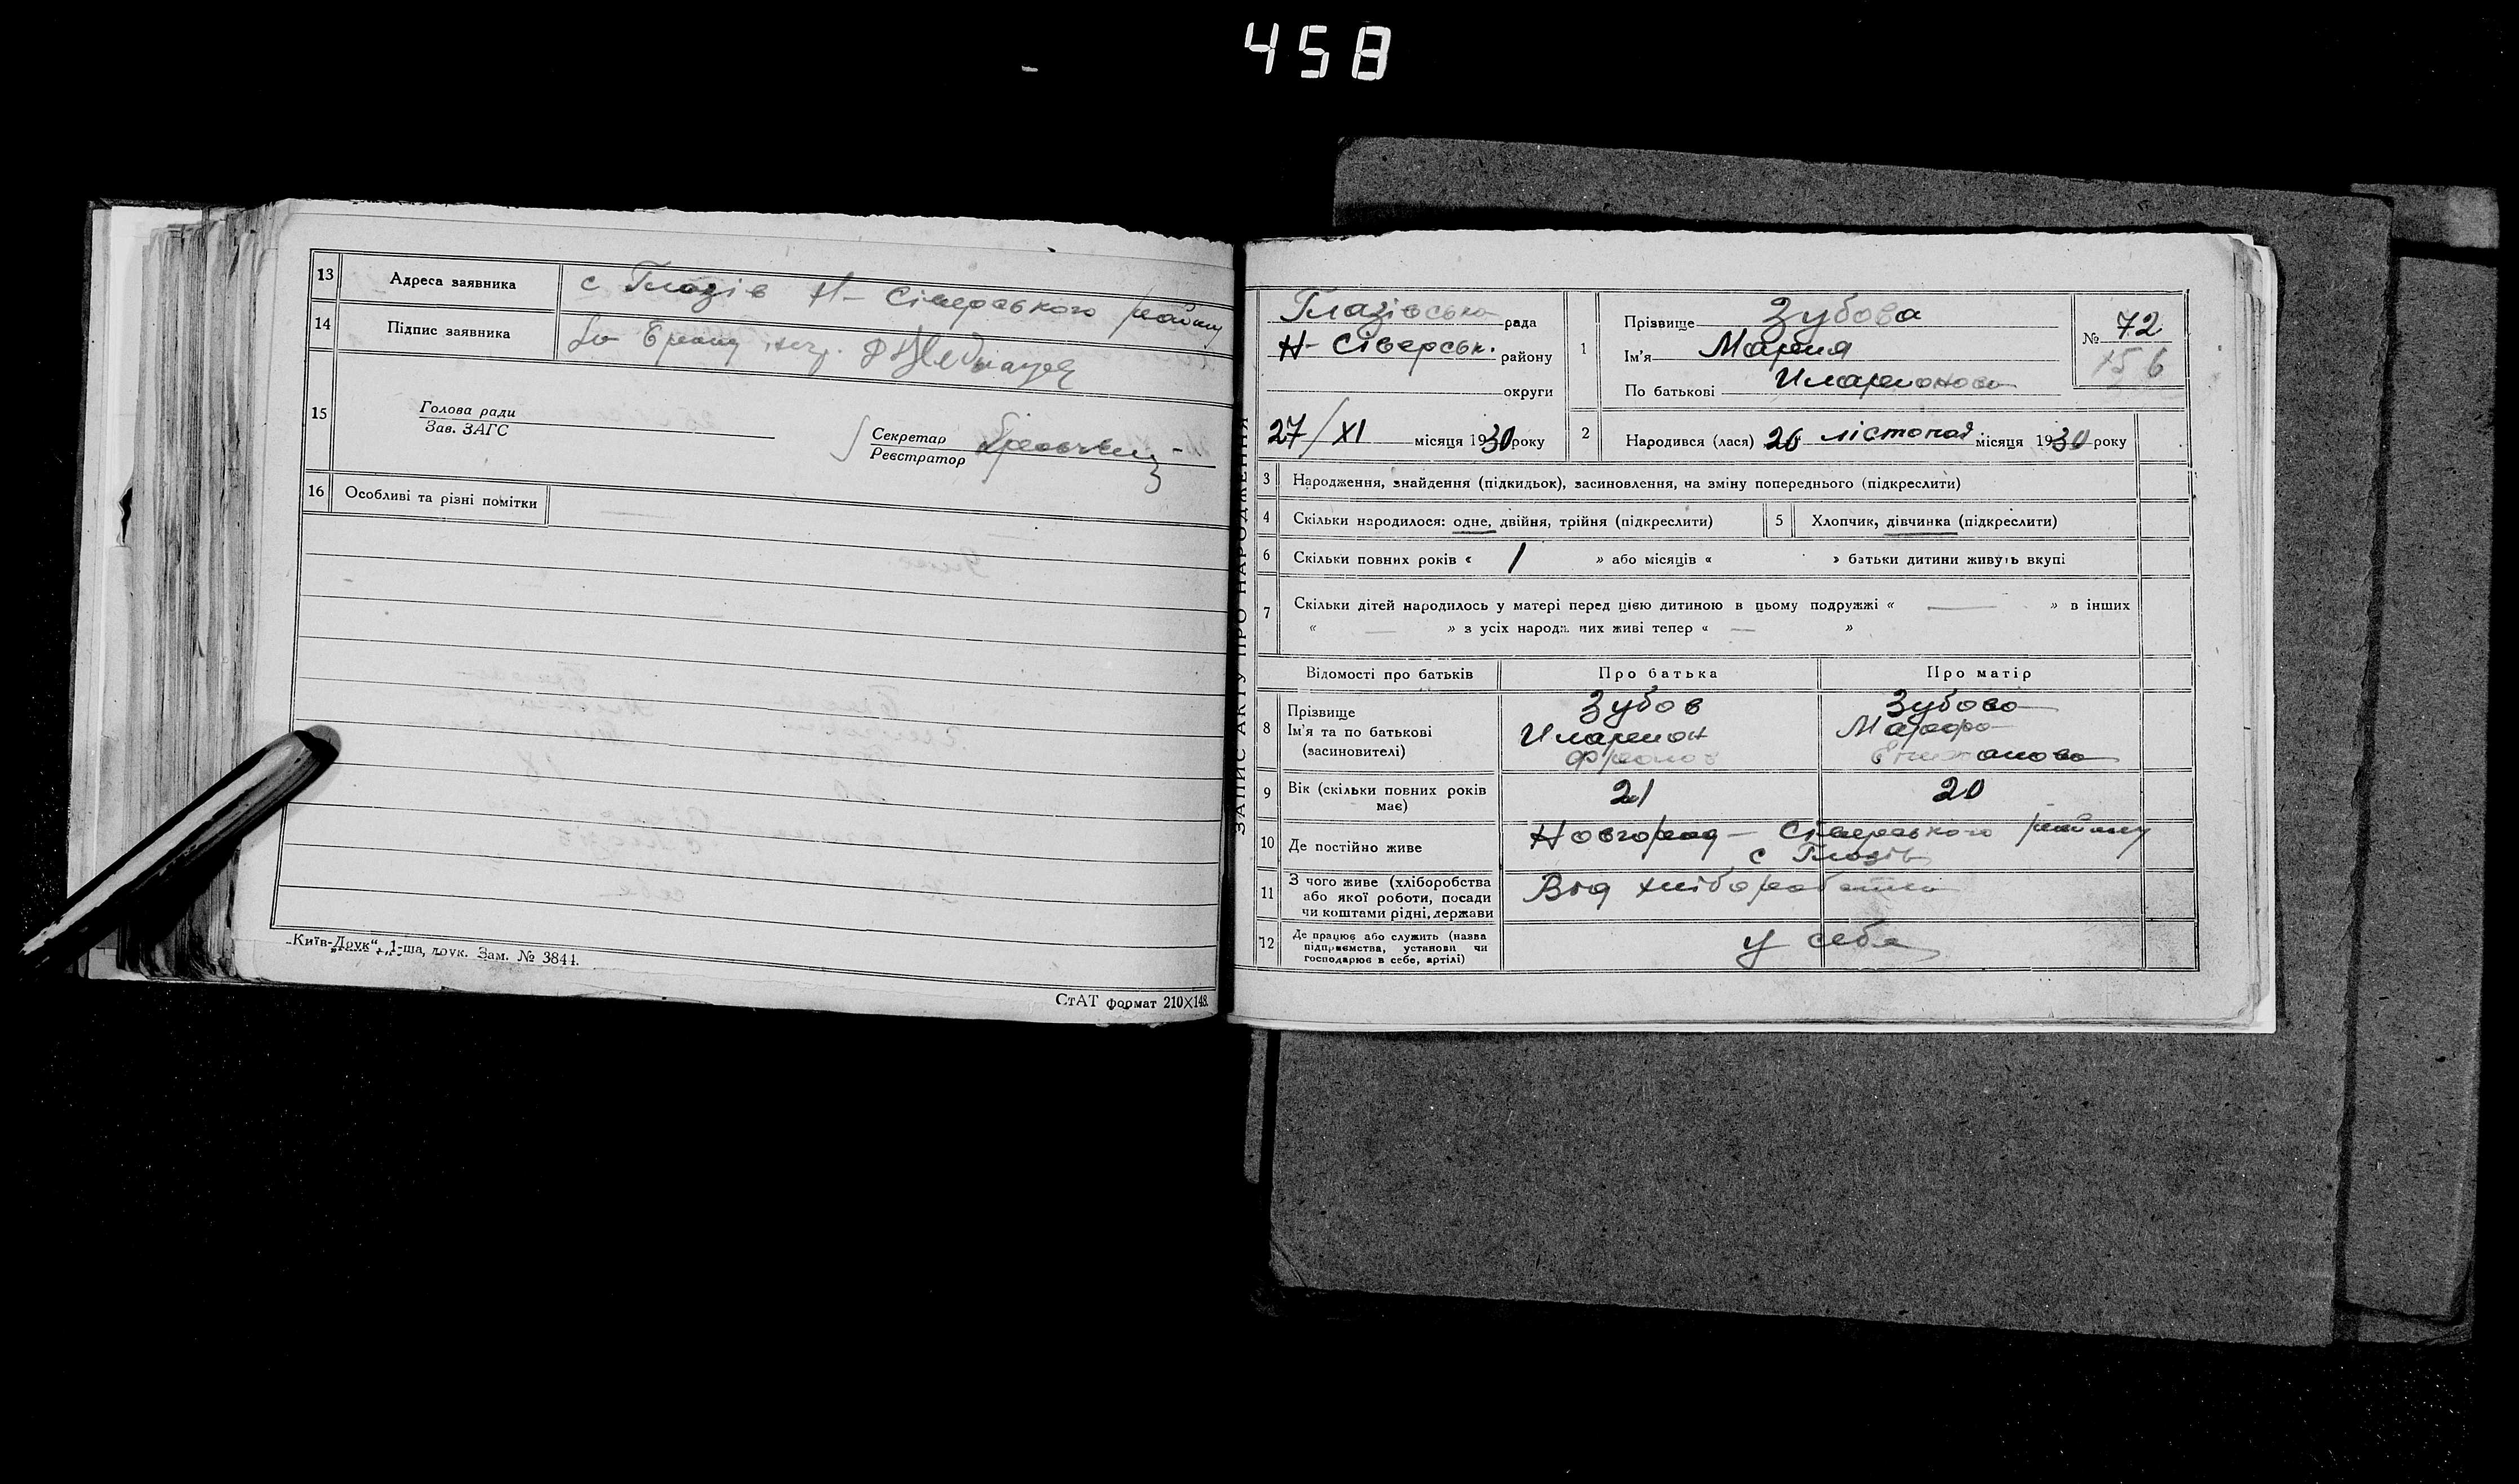 458
13 Адреса заявника с Глазів Н- Сіверського району
14 Підпис заявника
15 Голова ради
Зав. ЗАГС
Секретар
Реєстратор
16 Особливі та різні помітки
„Київ-Друк“, 1-ша друк. Зам. № 3844.
СтАТ формат 210×148.
ЗАПИС АКТУ ПРО НАРОДЖЕННЯ
Глазівська рада
Н- Сіверськ. району
округи
27/XI місяця 1930 року
1 Прізвище Зубова
Ім'я Мария
По батькові Иларионова
№ 72
156
2 Народився (лася) 26 лістопад місяця 1930 року
3 Народження, знайдення (підкидьок), засиновлення, на зміну попереднього (підкреслити)
4 Скільки народилося: одне, двійня, трійня (підкреслити) 5 Хлопчик, дівчинка (підкреслити)
6 Скільки повних років « 1 » або місяців « » батьки дитини живуть вкупі
7 Скільки дітей народилось у матері перед цією дитиною в цьому подружжі « — » в інших
« — » з усіх народж. них живі тепер « — »
Відомості про батьків Про батька Про матір
8 Прізвище Зубов Зубова
Ім'я та по батькові Иларион
(засиновителі)
9 Вік (скільки повних років має) 21 20
10 Де постійно живе Новгород — Сіверського району
с Глазів
11 З чого живе (хліборобства Від
або якої роботи, посади
чи коштами рідні, держави
12 Де працює або служить (назва у себе
підприємства, установи чи
господарює в себе, артілі)